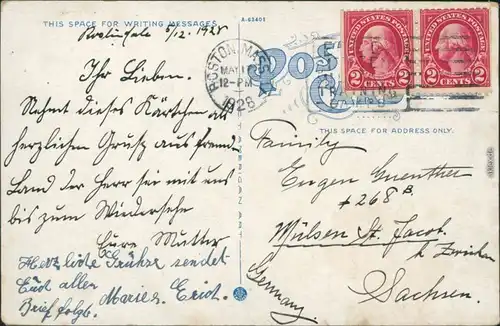 THIS SPACE FOR WRITING MESSAGES.
A-63401
Roslindale 5/12. 1928
Ihr Lieben.
Nehmt dieses Kärtchen als
herzlichen Gruß aus fremden
Land der Herr sei mit uns
bis zum Wiedersehe
Eure Mutter
Herzliche Grüße sendet
Euch allen
Marie u. Erich.
Brief folgt.
BOSTON, MA
MAY 12
12-PM
1928
POST
UNITED STATES POSTAGE
2 CENTS 2
UNITED STATES POSTAGE
2 CENTS 2
THIS SPACE FOR ADDRESS ONLY.
Family
Eugen Guenther
#268 B.
Mülsen St. Jacob.
b. Zwickau
Sachsen.
Germany.